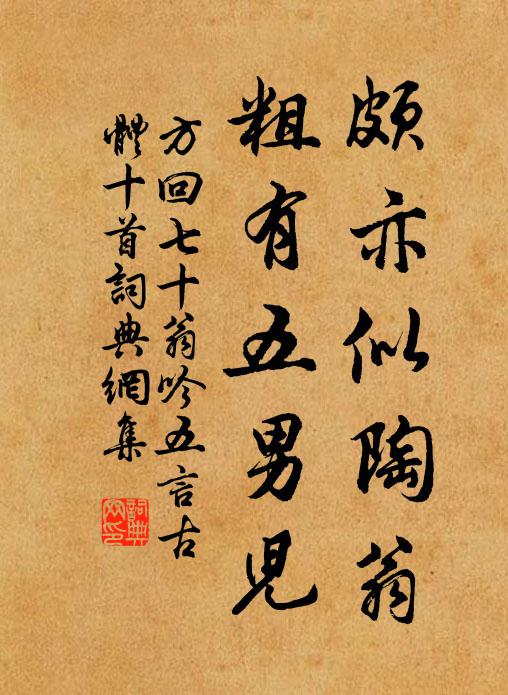 頗亦似陶翁
粗有五男兒
方回七十翁吟五言古
體十首詞典網集
詞典
网印